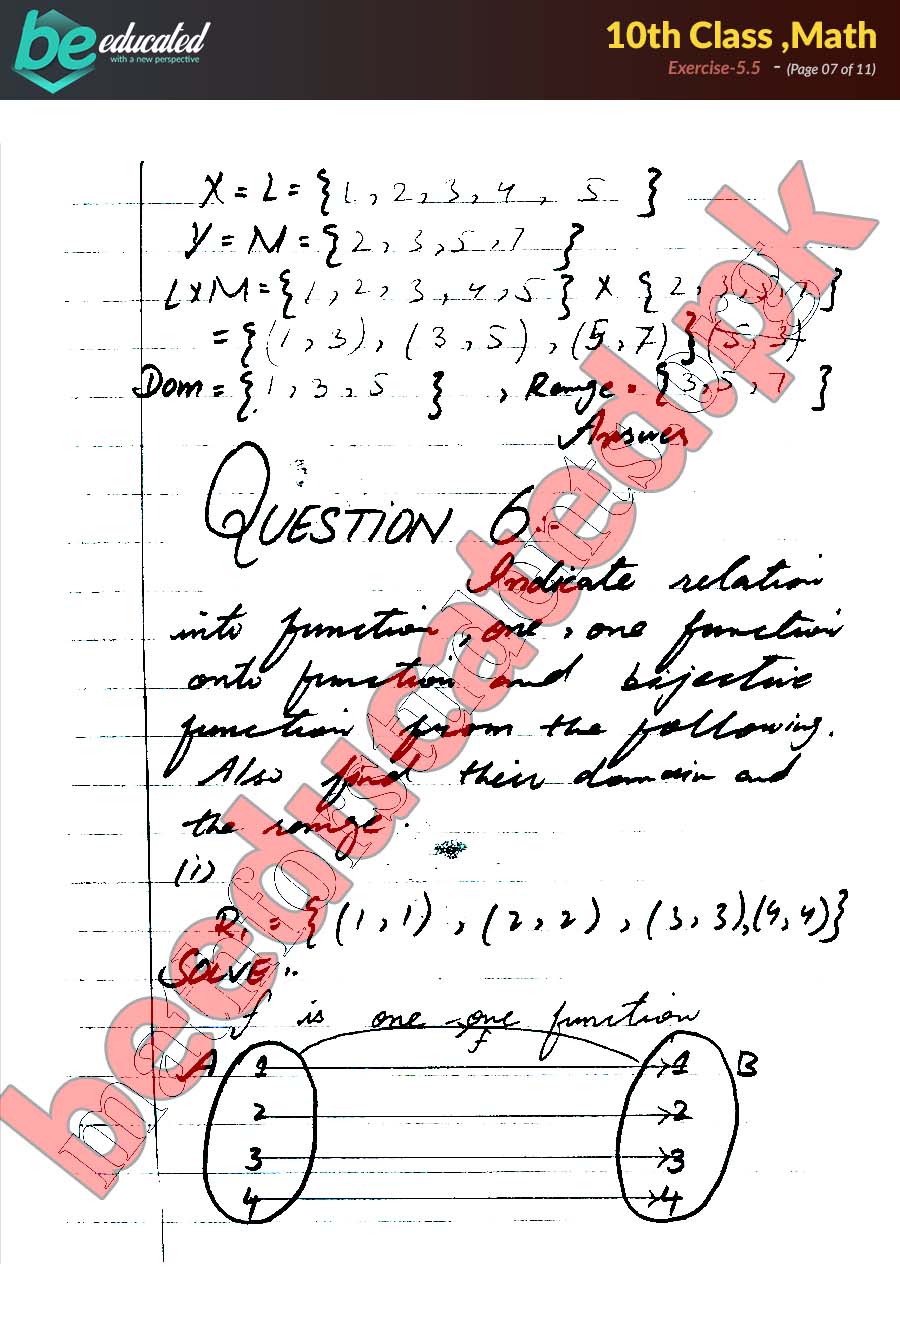 be educated
with a new perspective
10th Class ,Math
Exercise-5.5 - (Page 07 of 11)
X = L = {1, 2, 3, 4, 5}
Y = M = {2, 3, 5, 7}
L×M = {1, 2, 3, 4, 5} × {2, 3, 5, 7}
= {(1, 3), (3, 5), (5, 7)} (5, 3)
Dom = {1, 3, 5}, Range = {3, 5, 7}
Answer
QUESTION 6:-
Indicate relation
into function, one, one function
onto function and bijective
function from the following.
Also find their domain and
the range.
(i)
R₁ = {(1, 1), (2, 2), (3, 3), (4, 4)}
SOLVE :.
f is one -one function
f
A 1 1 B
2 2
3 3
4 4
beeducated.pk